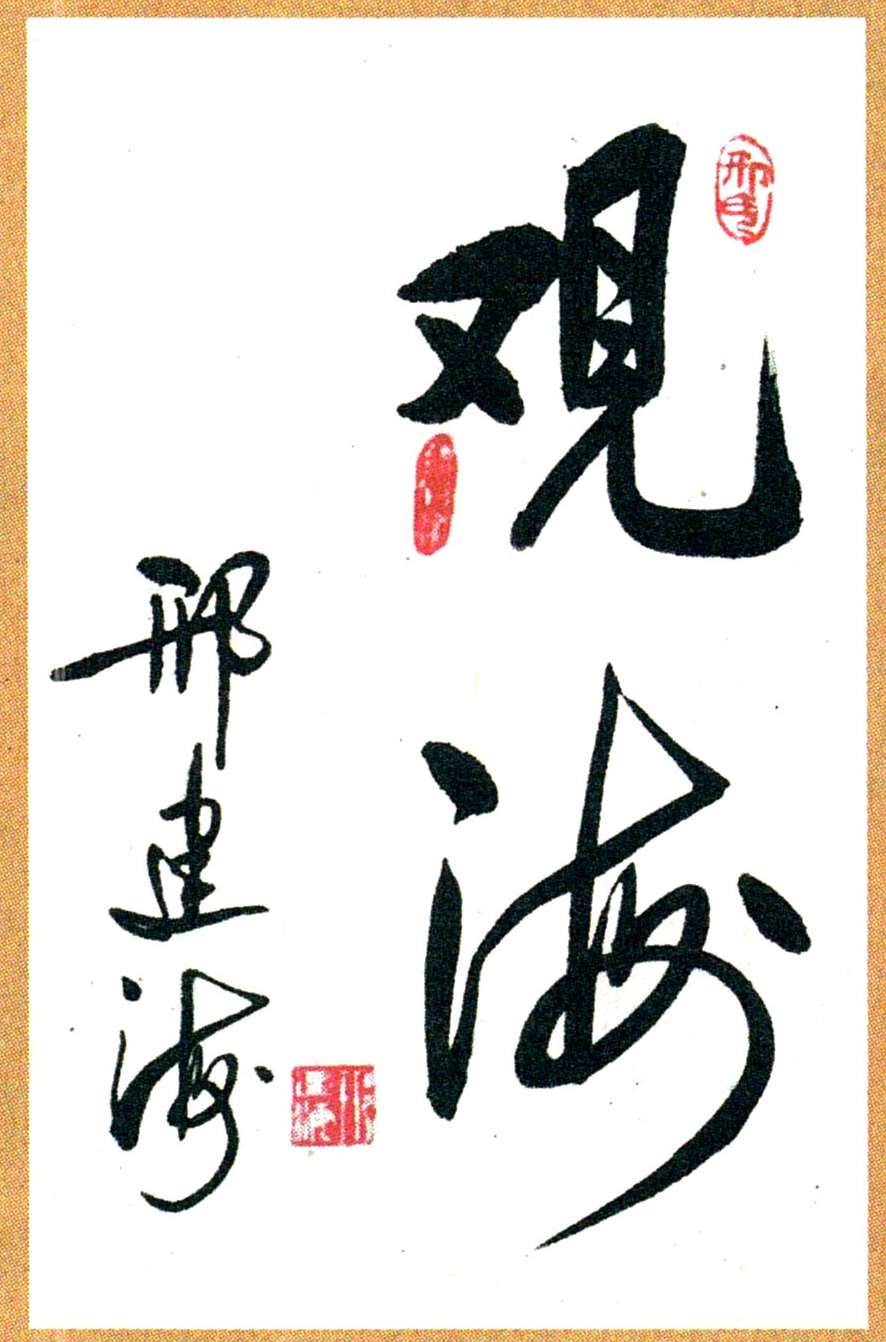 观海
邢建海